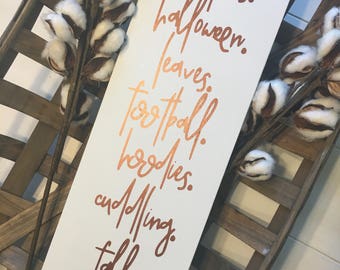 halloween.
leaves.
football.
hoodies.
cuddling.